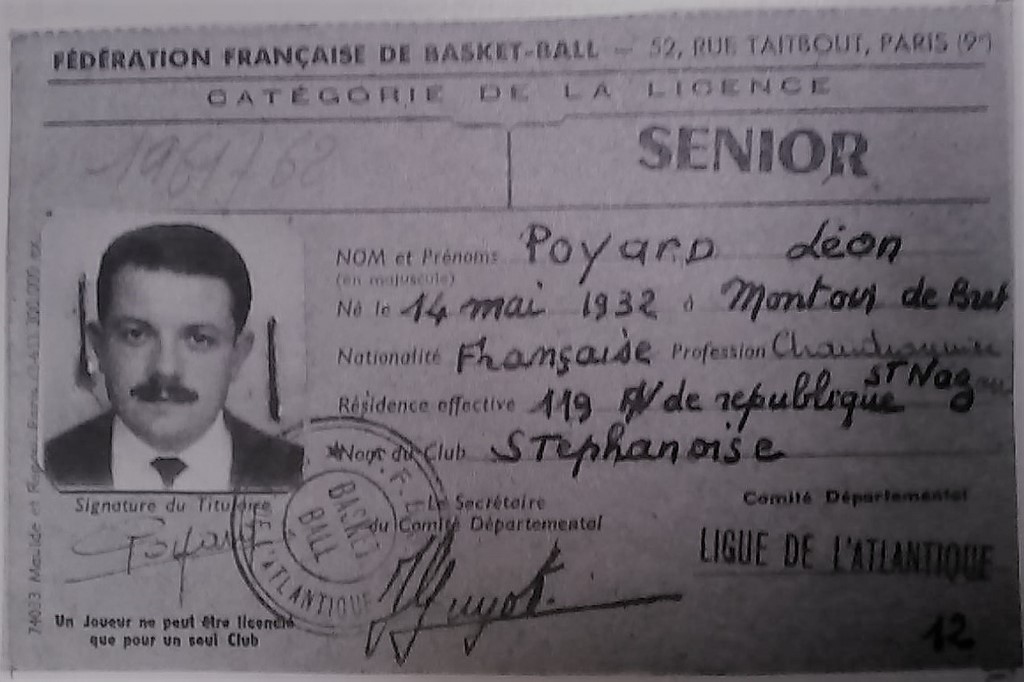 FÉDÉRATION FRANÇAISE DE BASKET-BALL — 52, RUE TAITBOUT, PARIS (9e)
CATÉGORIE DE LA LICENCE
1961/62
SENIOR
NOM et Prénoms POYARD Léon
(en majuscule)
Né le 14 mai 1932 à Montoir de Bret
Nationalité Française Profession
Résidence effective 119 AV de republique ST Naz
Nom du Club STEphanoise
Signature du Titulaire
Poyard
Le Secrétaire
du Comité Départemental
Guyot
Comité Départemental
LIGUE DE L'ATLANTIQUE
BASKET
BALL
L'ATLANTIQUE
Un Joueur ne peut être licencié
que pour un seul Club
12